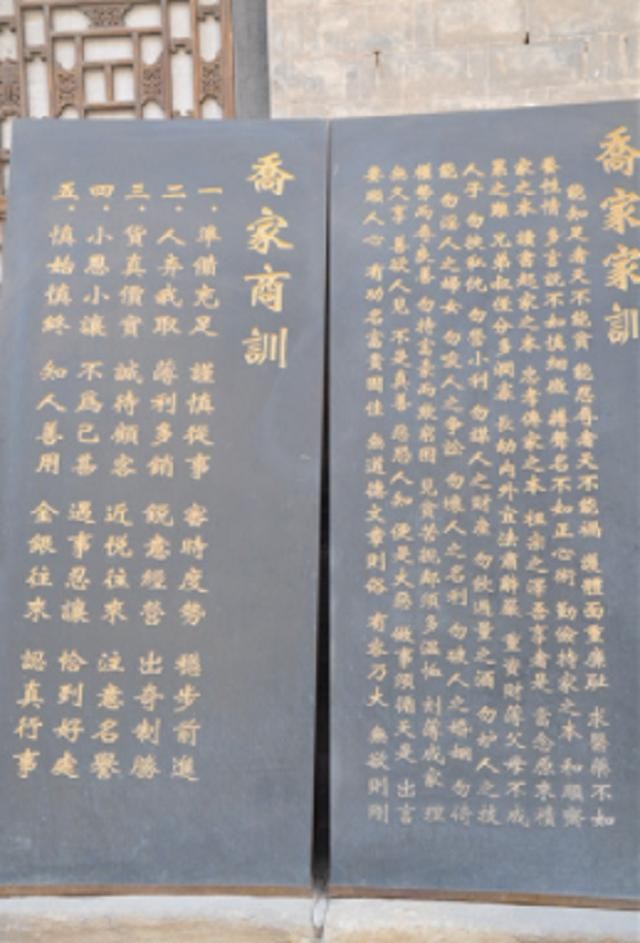 喬家家訓
能知足者天不能貧 能忍辱者天不能禍 護體面重廉恥 求醫藥不如
養性情 多言說不如慎細微 播聲名不如正心術 勤儉持家之本 和順齊
家之本 讀書起家之本 忠孝傳家之本 祖宗之澤吾享者是 當念原來積
累之難 兄弟叔侄分多潤寡 長幼內外立法肅辭嚴 重資財薄父母不成
人子 勿挾私仇 勿營小利 勿謀人之財產 勿飲過量之酒 勿妒人之技
能 勿淫人之婦女 勿唆人之爭訟 勿壞人之名利 勿破人之婚姻 勿倚
權勢而辱善 勿恃富豪而欺窮困 見貧苦親鄰須多溫恤 刻薄成家 理
無久享 善欲人見 不是真善 惡恐人知 便是大惡 做事須循天是 出言
要順人心 有功名富貴固佳 無道德文章則俗 有容乃大 無欲則剛
喬家商訓
一．準備充足 謹慎從事 審時度勢 穩步前進
二．人弃我取 薄利多銷 銳意經營 出奇制勝
三．貨真價實 誠待顧客 近悅往來 注意名譽
四．小恩小讓 不為己甚 遇事忍讓 恰到好處
五．慎始慎終 知人善用 金銀往來 認真行事